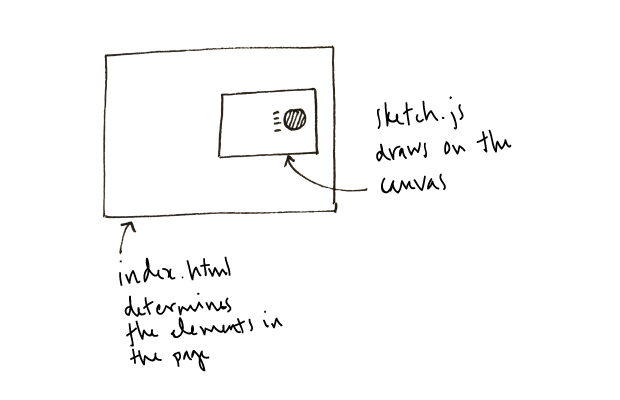 sketch.js
draws on the
canvas
index.html
determines
the elements in
the page